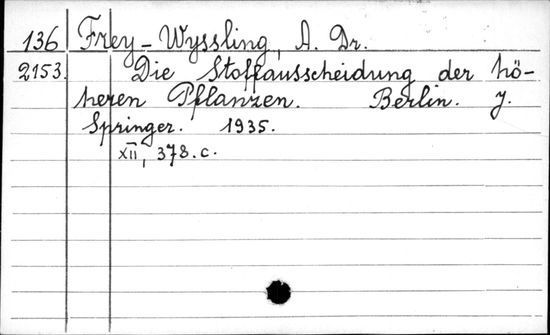 136 Frey-Wyssling, A. Dr.
2153. Die Stoffausscheidung der hö-
heren Pflanzen. Berlin. J.
Springer. 1935.
XII, 378.c.